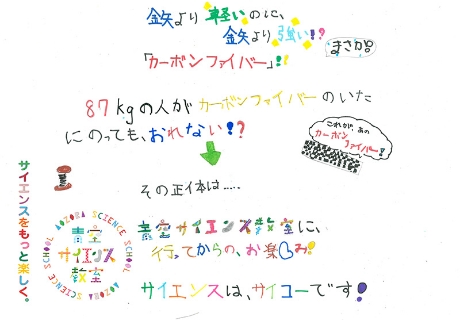 鉄より軽いのに、
鉄より強い!?
まさか。
「カーボンファイバー」!!
87kgの人がカーボンファイバーのいた
にのっても、おれない!?
これが、あの
カーボン
ファイバー!
その正体は……
青空サイエンス教室に、
行ってからの、お楽しみ!
サイエンスは、サイコーです!
サイエンスをもっと楽しく。
AOZORA SCIENCE SCHOOL
AOZORA SCIENCE SCHOOL
青空
サイエンス
教室